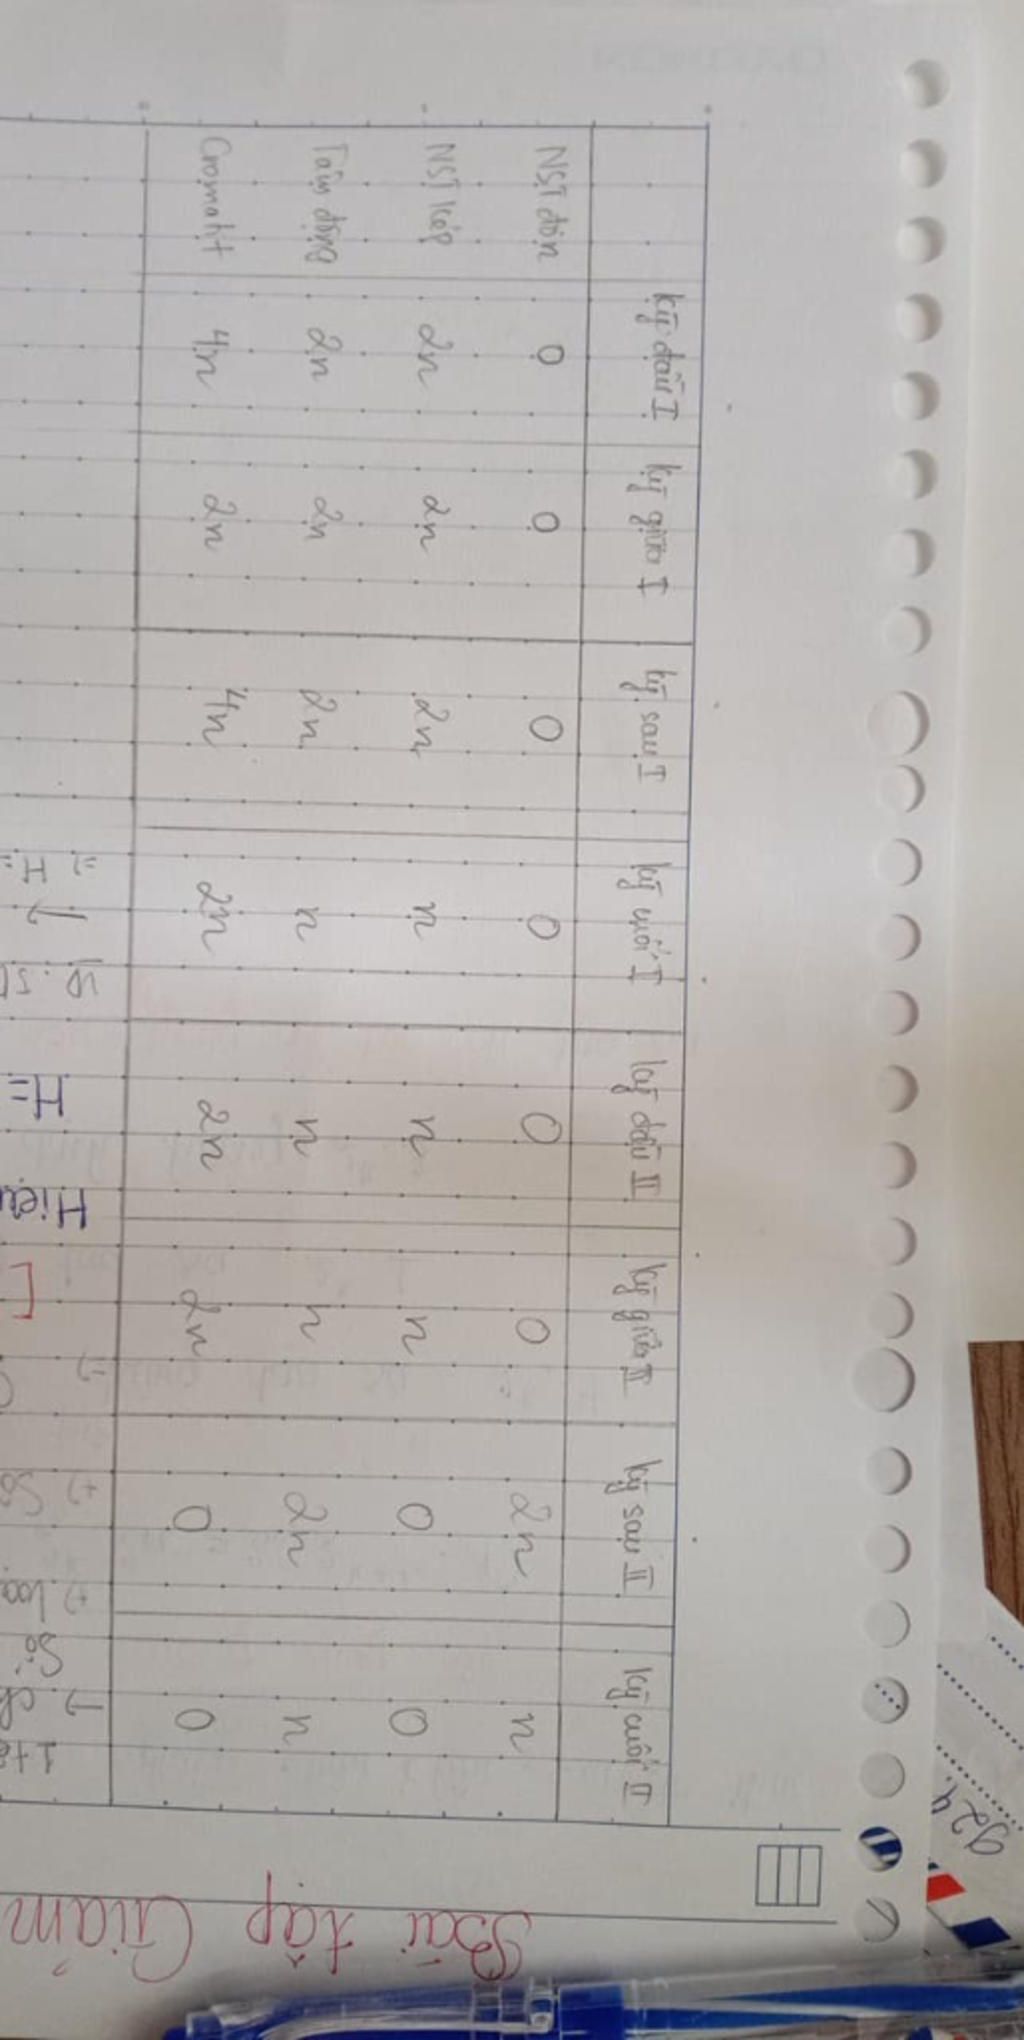 Kỳ đầu I Kỳ giữa I Kỳ sau I Kỳ cuối I Kỳ đầu II Kỳ giữa II Kỳ sau II Kỳ cuối II
NST đơn 0 0 0 0 0 0 2n n
NST kép 2n 2n 2n n n n 0 0
Tâm động 2n 2n 2n n n n 2n n
Cromatit 4n 2n 4n 2n 2n 2n 0 0
Bài tập Giảm
H=
924